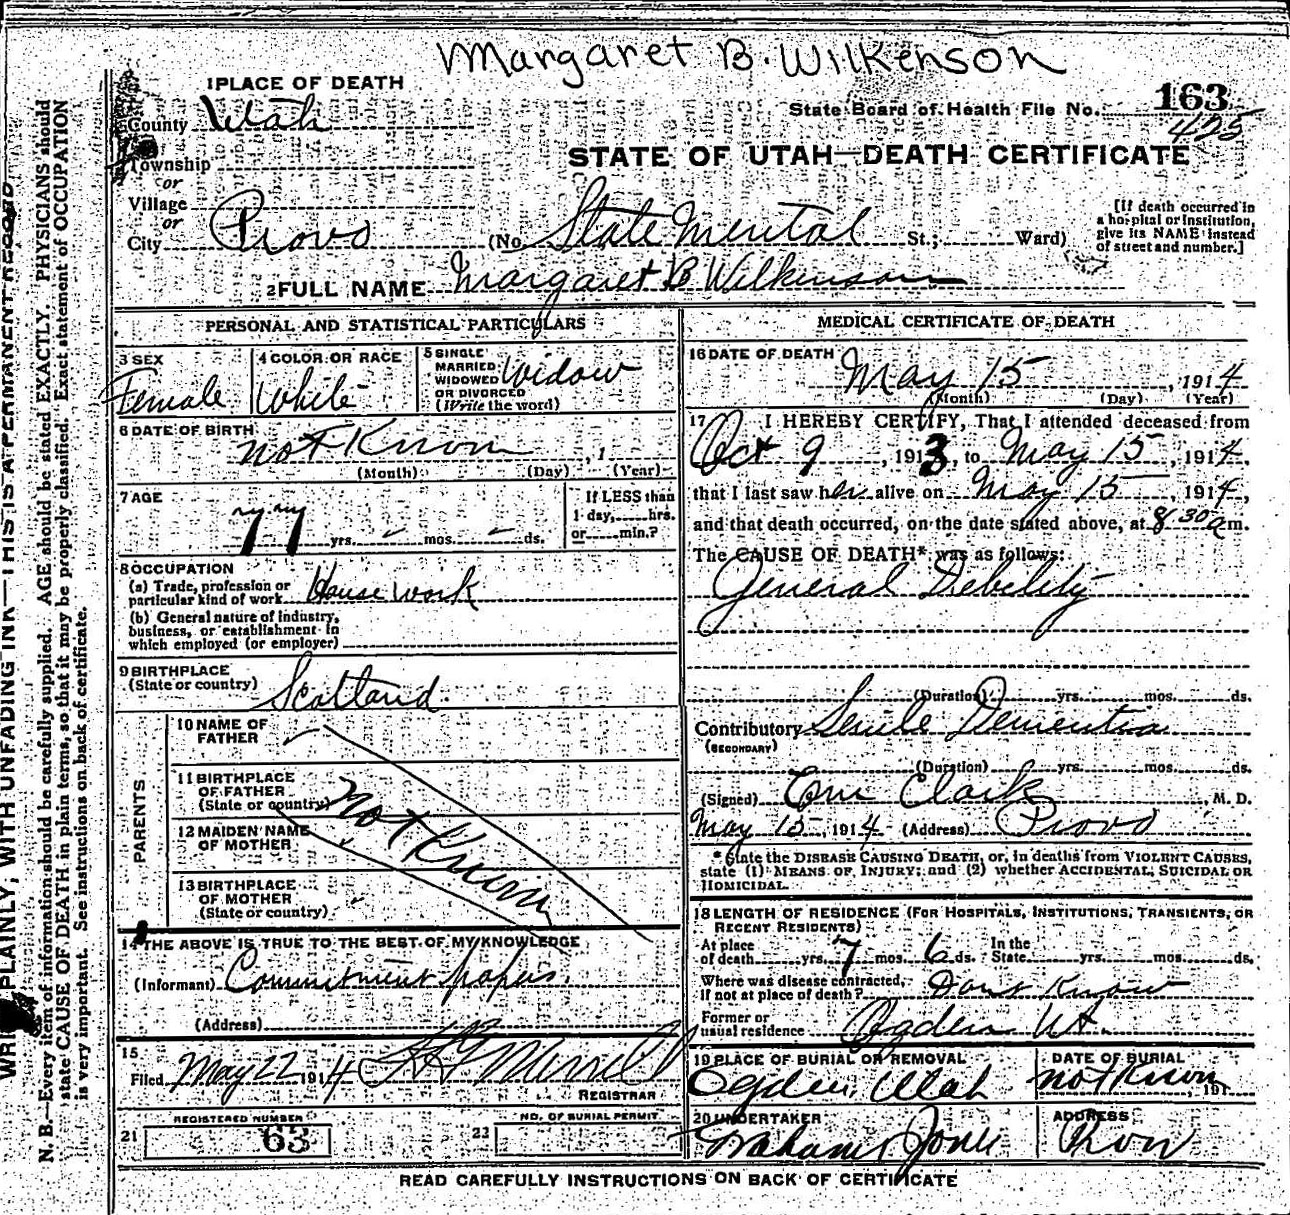 Margaret B. Wilkenson
1 PLACE OF DEATH
State Board of Health File No. 163
425
County Utah
STATE OF UTAH—DEATH CERTIFICATE
Township
or
Village
or
City Provo (No. State Mental St.; Ward)
[If death occurred in
a hospital or institution,
give its NAME instead
of street and number.]
2 FULL NAME Margaret B Wilkinson
PERSONAL AND STATISTICAL PARTICULARS
3 SEX
Female
4 COLOR OR RACE
White
5 SINGLE
MARRIED
WIDOWED
OR DIVORCED
(Write the word)
Widow
6 DATE OF BIRTH
not Known , 1
(Month) (Day) (Year)
7 AGE
77 yrs. mos. ds.
If LESS than
1 day, hrs.
or min.?
8 OCCUPATION
(a) Trade, profession or
particular kind of work House work
(b) General nature of industry,
business, or establishment in
which employed (or employer)
9 BIRTHPLACE
(State or country) Scotland
PARENTS
10 NAME OF
FATHER
11 BIRTHPLACE
OF FATHER
(State or country)
12 MAIDEN NAME
OF MOTHER
13 BIRTHPLACE
OF MOTHER
(State or country)
not Known
14 THE ABOVE IS TRUE TO THE BEST OF MY KNOWLEDGE
(Informant) Commitment papers.
(Address)
15
Filed May 22 1914 Merrill
REGISTRAR
REGISTERED NUMBER
21 63
NO. OF BURIAL PERMIT
22
MEDICAL CERTIFICATE OF DEATH
16 DATE OF DEATH
May 15 , 1914
(Month) (Day) (Year)
17 I HEREBY CERTIFY, That I attended deceased from
Oct 9 , 1913, to May 15 , 1914,
that I last saw her alive on May 15 , 1914,
and that death occurred, on the date stated above, at 8 30 a m.
The CAUSE OF DEATH* was as follows:
General Debility
(Duration) yrs. mos. ds.
Contributory Senile Dementia
(SECONDARY)
(Duration) yrs. mos. ds.
(Signed) Clark , M. D.
May 15, 1914 (Address) Provo
* State the DISEASE CAUSING DEATH, or, in deaths from VIOLENT CAUSES,
state (1) MEANS OF INJURY; and (2) whether ACCIDENTAL, SUICIDAL OR
HOMICIDAL.
18 LENGTH OF RESIDENCE (FOR HOSPITALS, INSTITUTIONS, TRANSIENTS, OR
RECENT RESIDENTS)
At place
of death yrs. 7 mos. 6 ds. In the
State yrs. mos. ds.
Where was disease contracted,
if not at place of death? Dont Know
Former or
usual residence Ogden Ut.
19 PLACE OF BURIAL OR REMOVAL
Ogden, Utah
DATE OF BURIAL
not Known , 191
20 UNDERTAKER
Jones
ADDRESS
READ CAREFULLY INSTRUCTIONS ON BACK OF CERTIFICATE
PLAINLY, WITH UNFADING INK—THIS IS A PERMANENT RECORD
N. B.—Every item of information should be carefully supplied. AGE should be stated EXACTLY. PHYSICIANS should
state CAUSE OF DEATH in plain terms, so that it may be properly classified. Exact statement of OCCUPATION
is very important. See instructions on back of certificate.